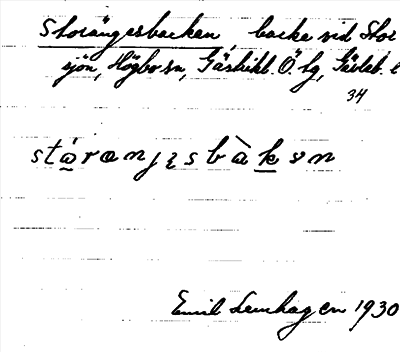 Storängesbacken, backe vid Stor
sjön, Högbo sn, Gästrikl. Ö. tg, Gävleb. l
34
stɷ̀rɑnjɛsbàkɷn
Emil Lenhagen 1930